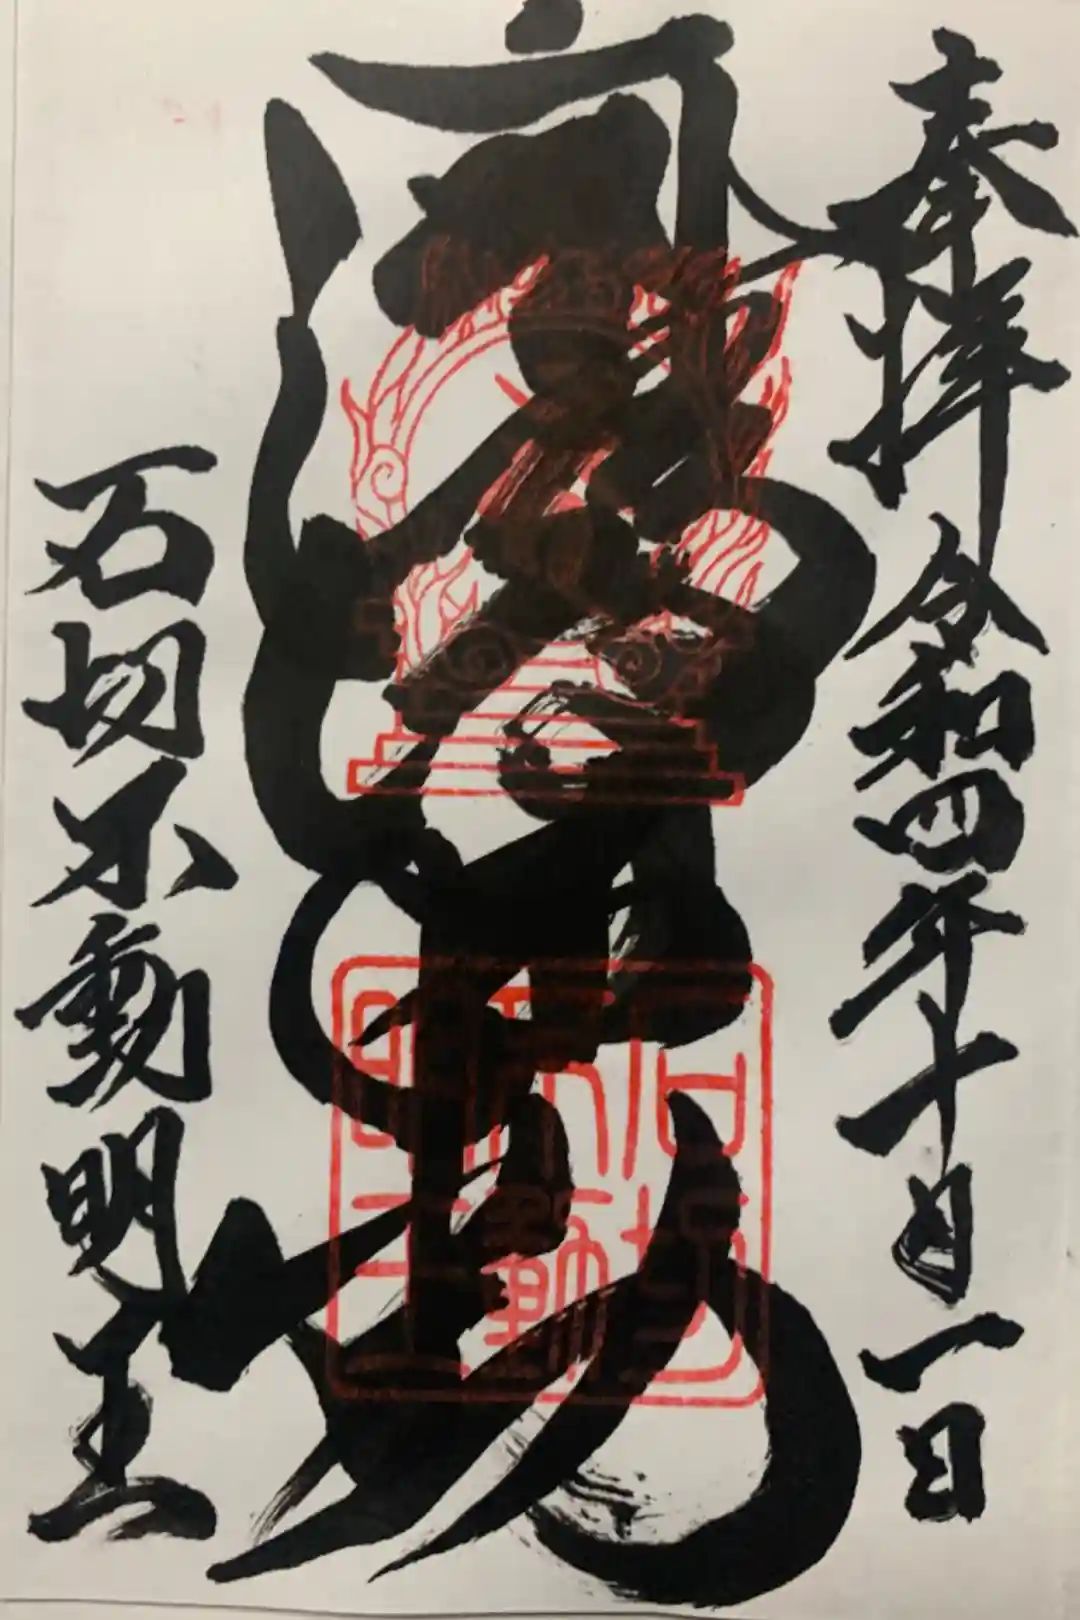 奉拝 令和四年十月一日
石切不動明王
石切
不動
明王